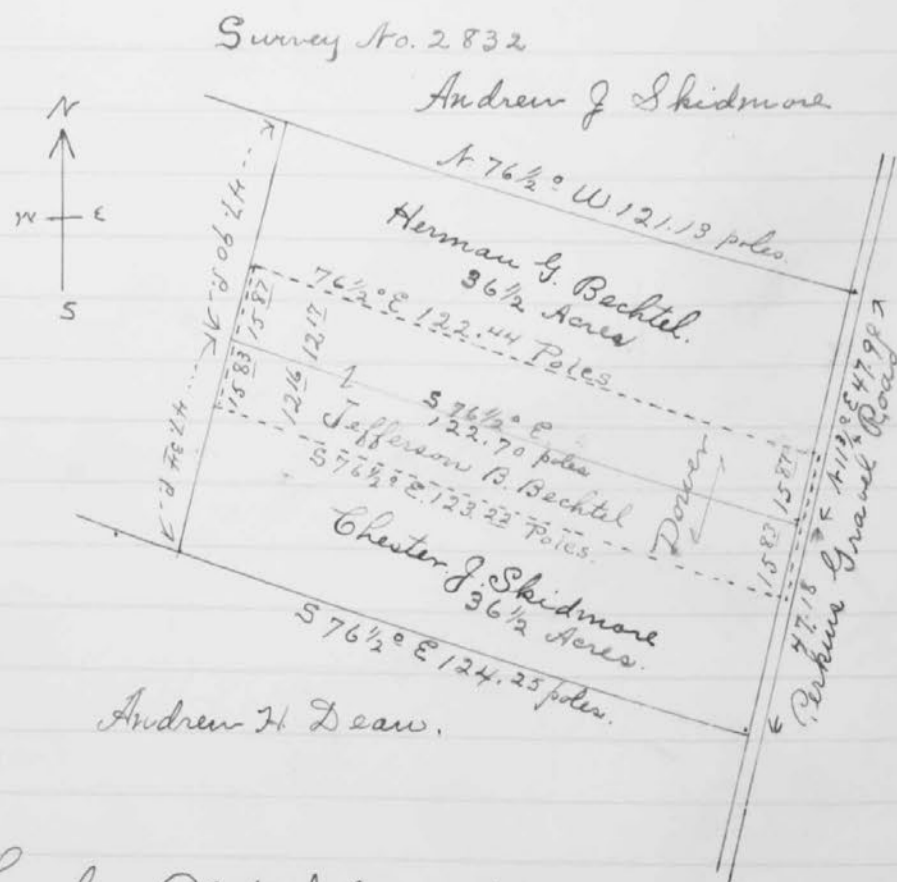 Survey No. 2832
Andrew J Skidmore
N
W E
S
N. 76½° W. 121.13 poles.
Herman G. Bechtel.
36½ Acres
47.90 P.
76½° E. 122.44 Poles
15 87
12 17
15 83
12 16
S 76½° E.
122.70 poles
Jefferson B. Bechtel
S 76½° E. 123.22 Poles.
Dower
15 87
15 83
47.34 P.
Chester J. Skidmore
36½ Acres.
S 76½° E 124.25 poles.
47.18
N 11¾° E 47.98
Perkins Gravel Road
Andrew H. Dean.